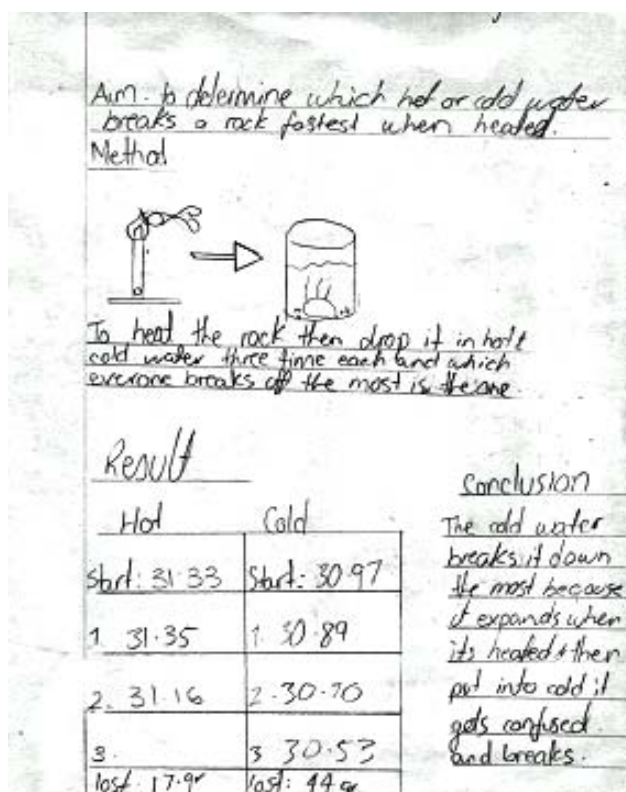 Aim. to determine which hot or cold water
breaks a rock fastest when heated.
Method
To heat the rock then drop it in hot &
cold water three time each and which
everone breaks off the most is the one.
Result
Hot Cold
Start: 31.33 Start: 30.97
1. 31.35 1. 30.89
2. 31.16 2. 30.70
3. 3 30.53
lost: 17.gr lost: 44 gr
Conclusion
The cold water
breaks it down
the most because
it expands when
its heated & then
put into cold it
gets confused
and breaks.